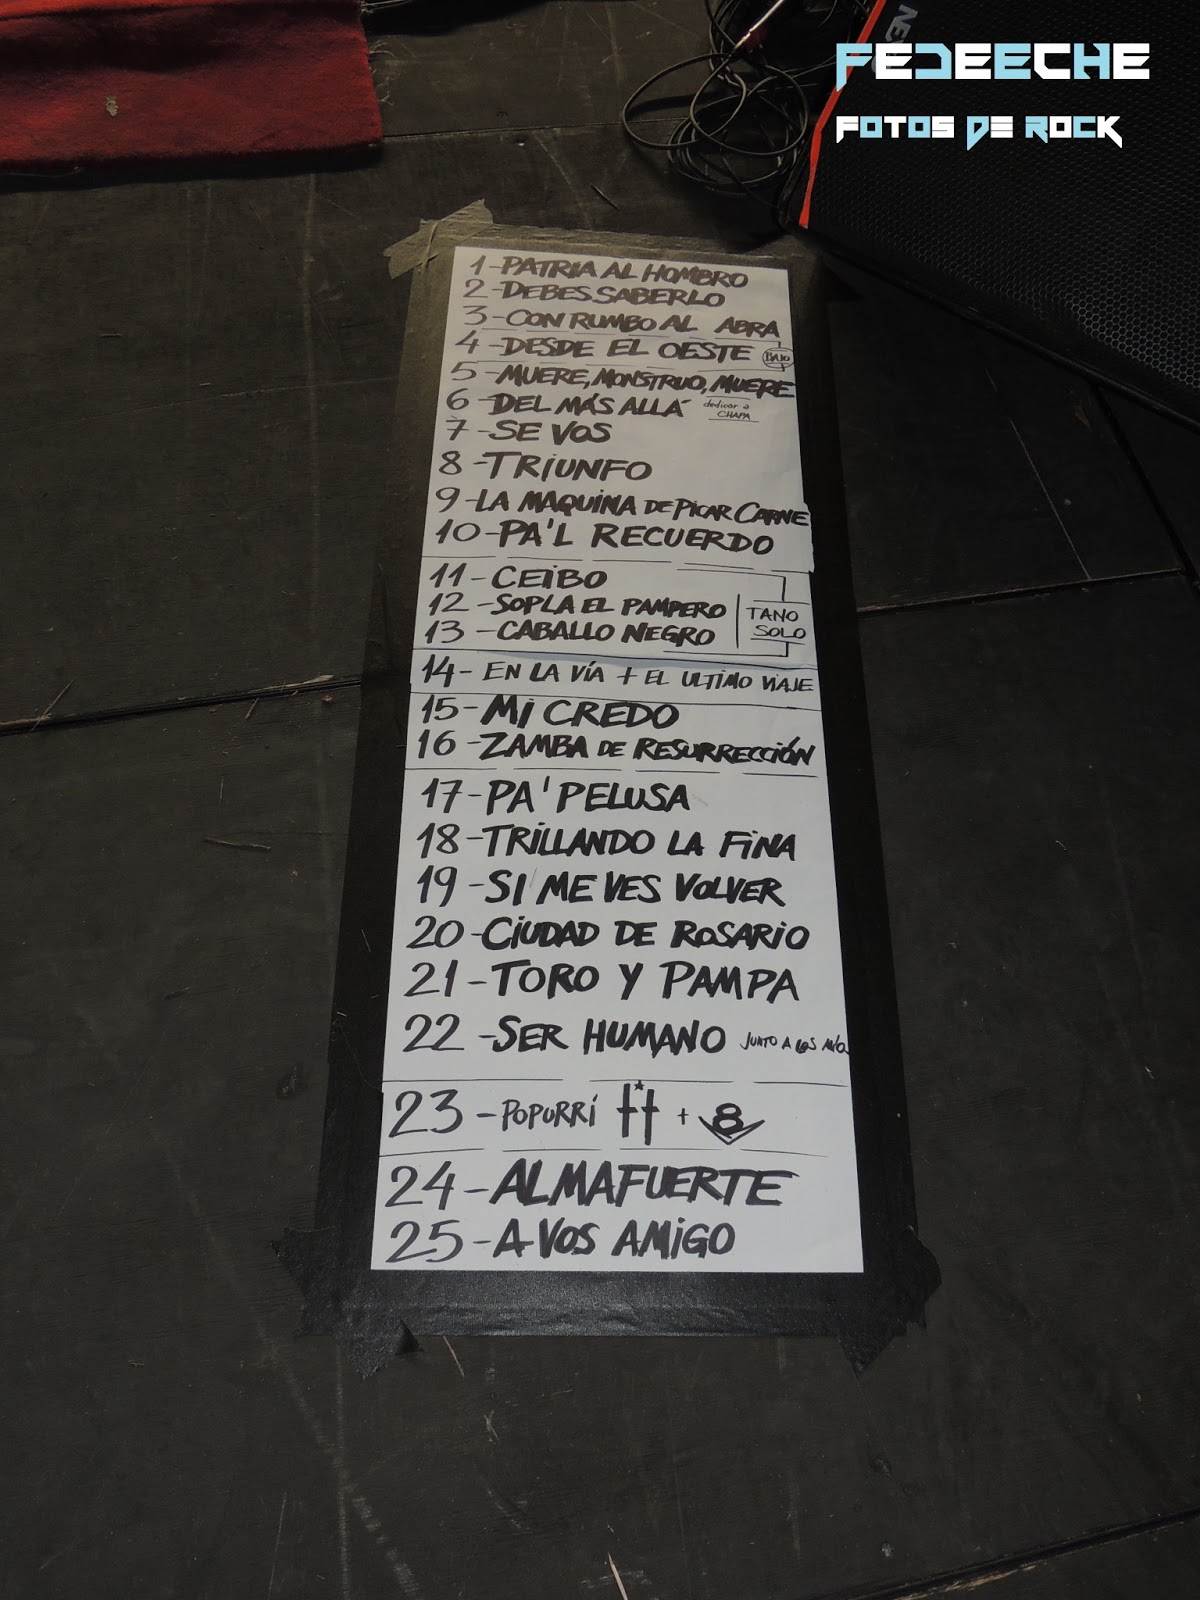 NEX
FEDEECHE
FOTOS DE ROCK
1-PATRIA AL HOMBRO
2-DEBES SABERLO
3-CON RUMBO AL ABRA
4-DESDE EL OESTE BAJO
5-MUERE, MONSTRUO, MUERE
6-DEL MÁS ALLÁ dedicar a
CHAPA
7-SE VOS
8-TRIUNFO
9-LA MAQUINA DE PICAR CARNE
10-PA'L RECUERDO
11-CEIBO
12-SOPLA EL PAMPERO TANO
13-CABALLO NEGRO SOLO
14-EN LA VÍA + EL ULTIMO VIAJE
15-MI CREDO
16-ZAMBA DE RESURRECCIÓN
17-PA' PELUSA
18-TRILLANDO LA FINA
19-SI ME VES VOLVER
20-CIUDAD DE ROSARIO
21-TORO Y PAMPA
22-SER HUMANO JUNTO A LOS MÍOS
23-POPURRÍ + 8
24-ALMAFUERTE
25-A VOS AMIGO